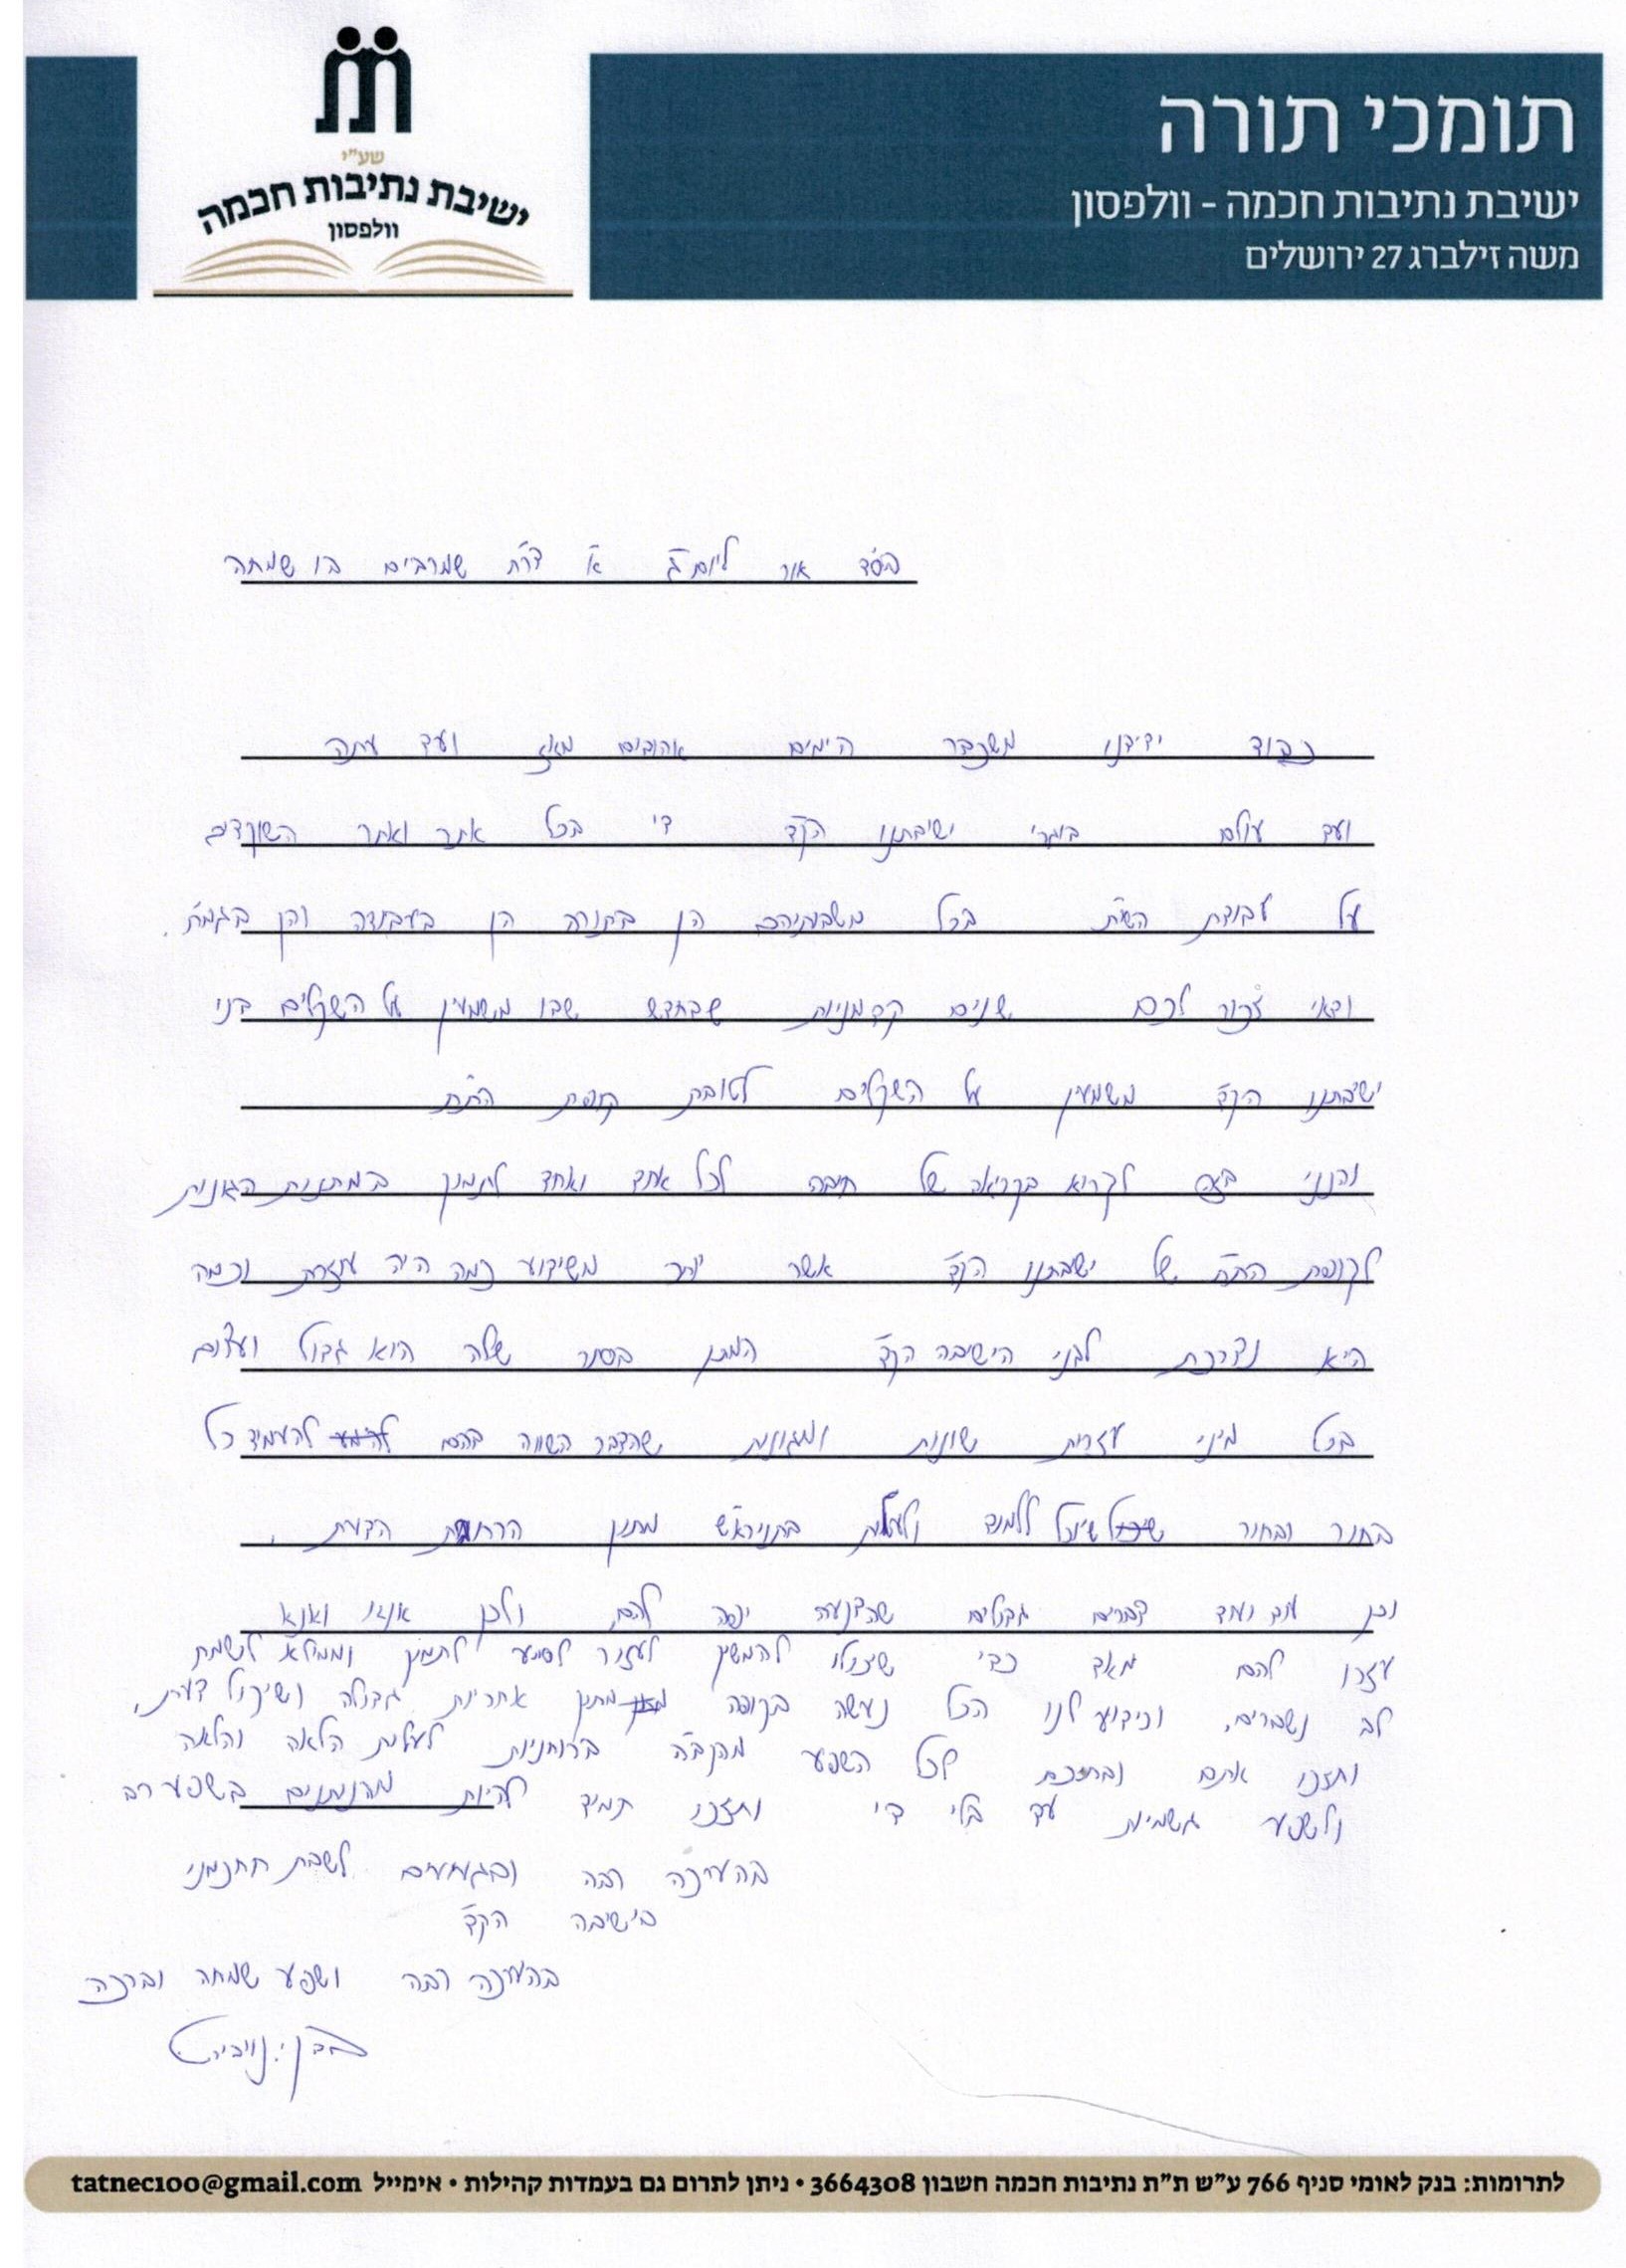 תומכי תורה
ישיבת נתיבות חכמה - וולפסון
משה זילברג 27 ירושלים
תת
שע"י
ישיבת נתיבות חכמה
וולפסון
בס"ד אור ליום ג' א' דר"ח שמרבים בו שמחה
כבוד ידידנו משכבר הימים אהובים מאז ועד עתה
ועד עולם בוגרי ישיבתנו הק' די בכל אתר ואתר השוקדים
על עבודת השי"ת בכל משבצותיהם הן בתורה הן בעבודה והן בגמ"ח.
ודאי זכור לכם שנים קדמוניות שבחדש שבו משמיעין על השקלים בני
ישיבתנו הק' משמיעין על השקלים לטובת קופת הת"ת
והנני בזה לקרוא בקריאה של חיבה לכל אחד ואחד לתמוך במתנות הגונות
לקופת הת"ת של ישיבתנו הק' אשר יותר משידוע כמה היה עוזרת וכמה
היא נצרכת לבני הישיבה הק' המתן בסתר שלה הוא גדול ועצום
בכל מיני עזרות שונות ומגוונות שהדבר השווה בהם להעמיד כל
בחור ובחור שיוכל ללמוד ולעלות בתוי"ראש מתוך הרחבת הדעת.
וכן עוד ועוד דברים גדולים שהצנעה יפה להם, ולכן אנא ואנא
עזרו להם מאד כדי שיוכלו להמשיך לעזור לסייע לתמוך וממילא לשמח
לב נשברים, וכידוע לנו הכל נעשה בקופה מתוך אחריות גדולה ושיקול דעת,
ותזכו אתם וברכת לכל השפע מהקב"ה ברוחניות לעלות הלאה והלאה
ולשפע גשמיות עד בלי די ותזכו תמיד להיות מהנותנים בשפע רב
בהערכה רבה ובגעגועים לשבת תחכמוני
בישיבה הק'
בהערכה רבה ושפע שמחה וברכה
לתרומות: בנק לאומי סניף 766 ע"ש ת"ת נתיבות חכמה חשבון 3664308 • ניתן לתרום גם בעמדות קהילות • אימייל tatnec100@gmail.com